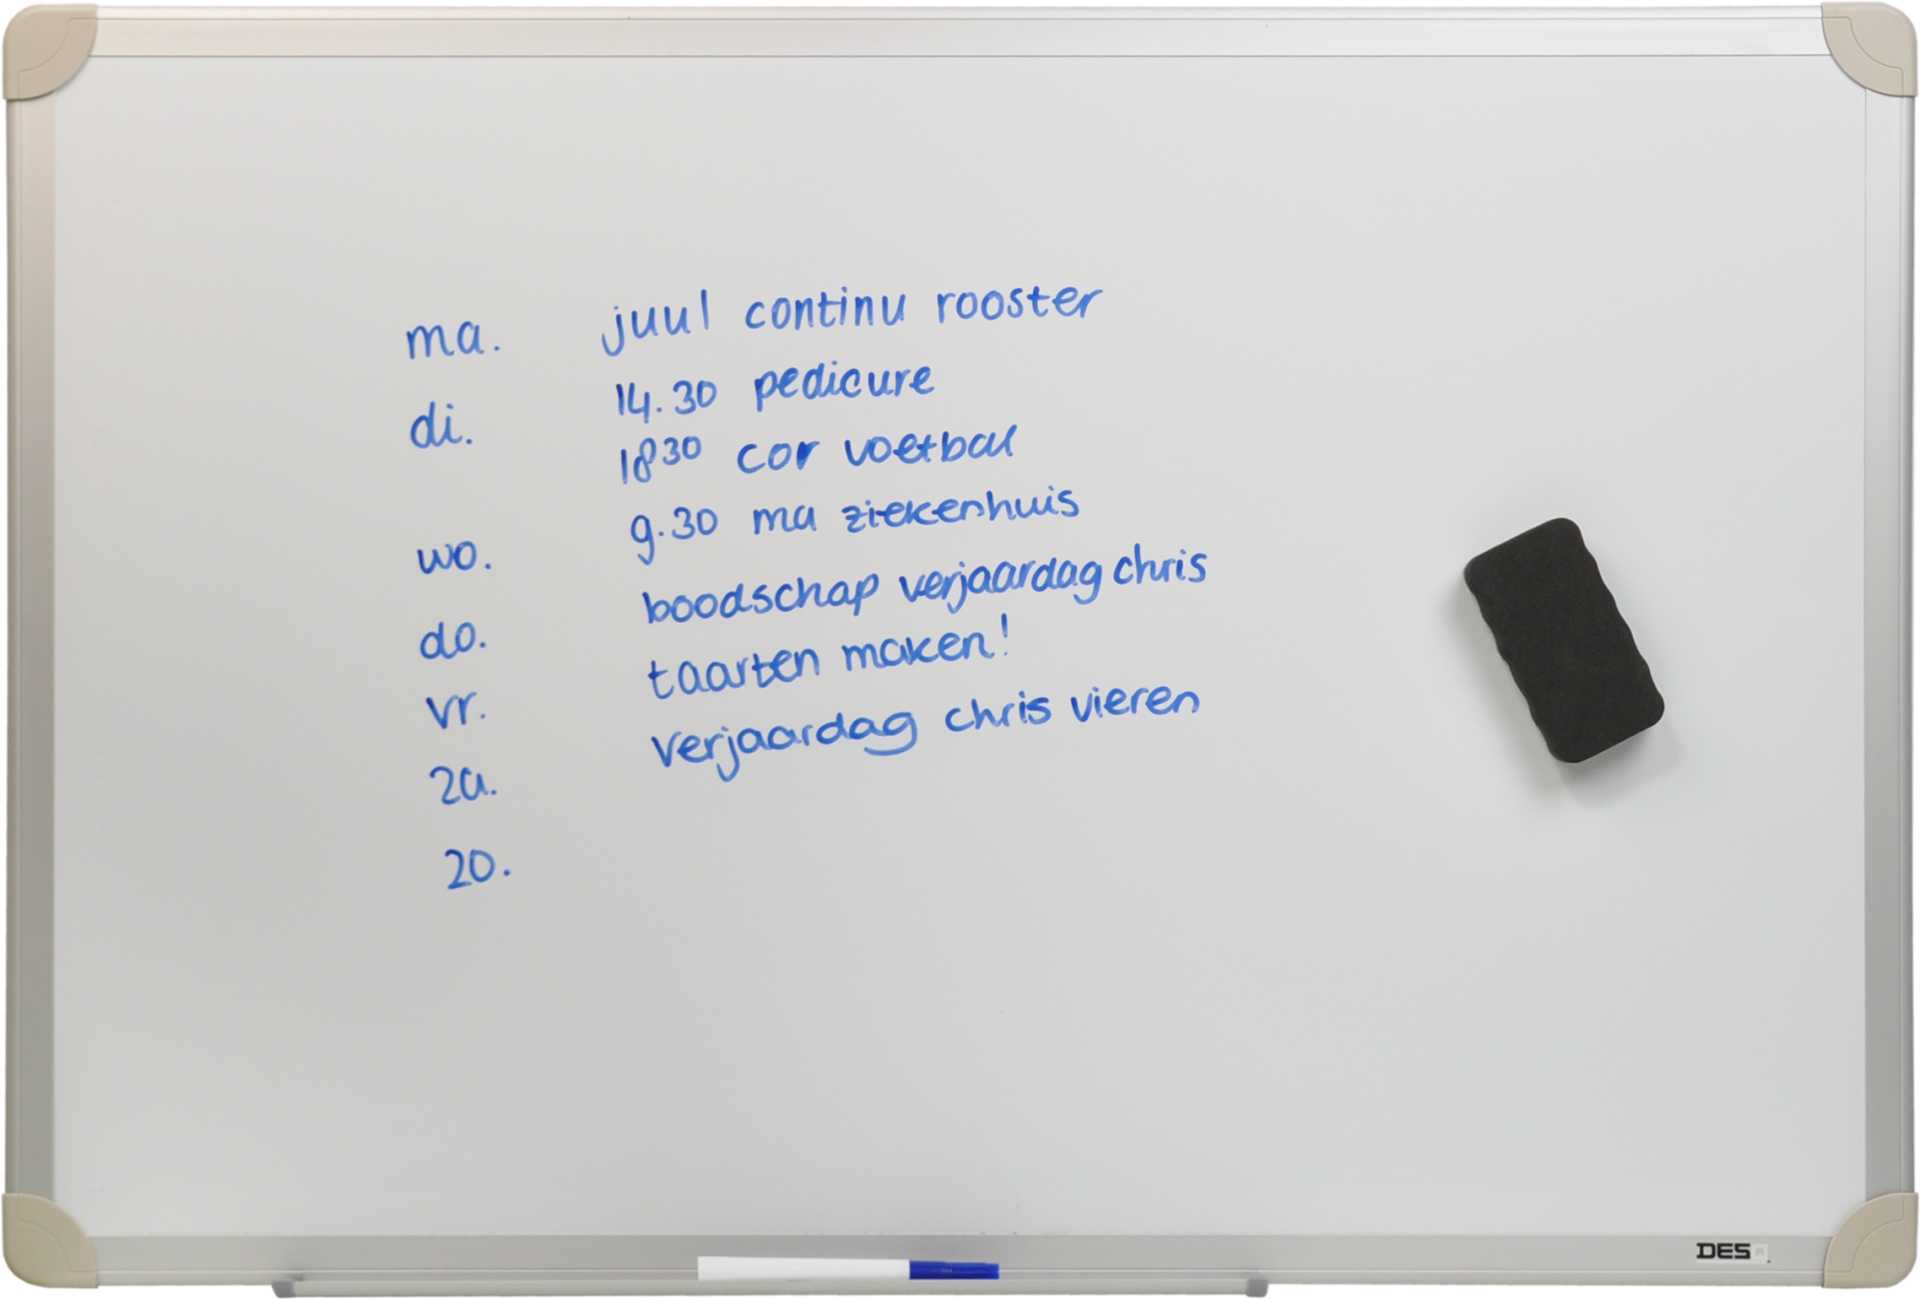 ma. juul continu rooster
di. 14.30 pedicure
18³⁰ cor voetbal
wo. 9.30 ma ziekenhuis
do. boodschap verjaardag chris
vr. taarten maken!
za. verjaardag chris vieren
zo.
DESQ